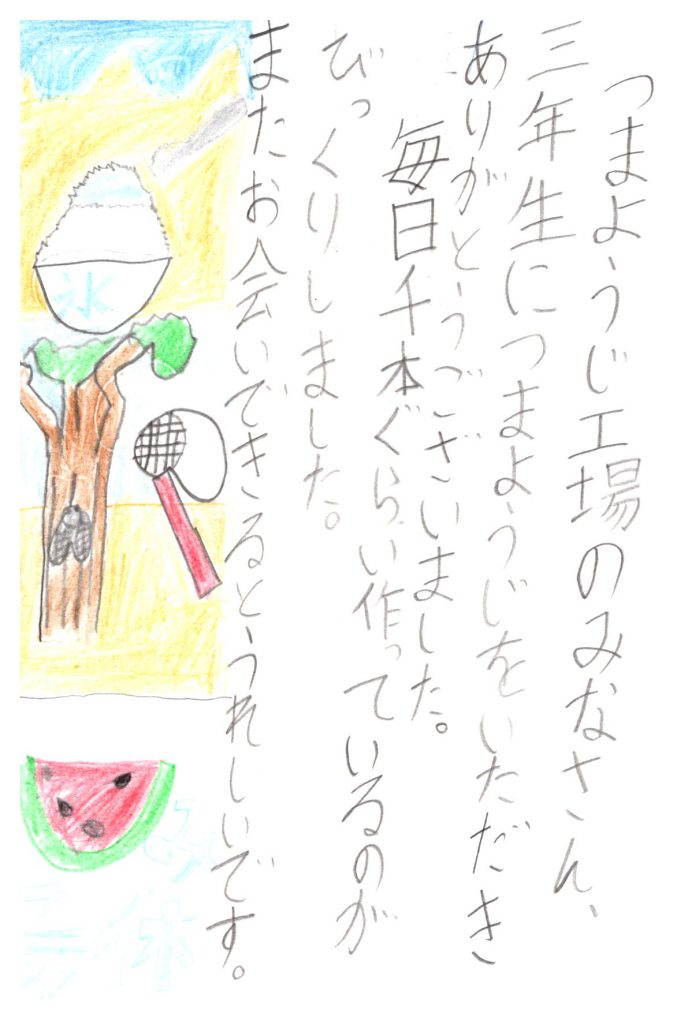 つまようじ工場のみなさん、
三年生につまようじをいただき
ありがとうございました。
毎日千本ぐらい作っているのが
びっくりしました。
またお会いできるとうれしいです。
氷